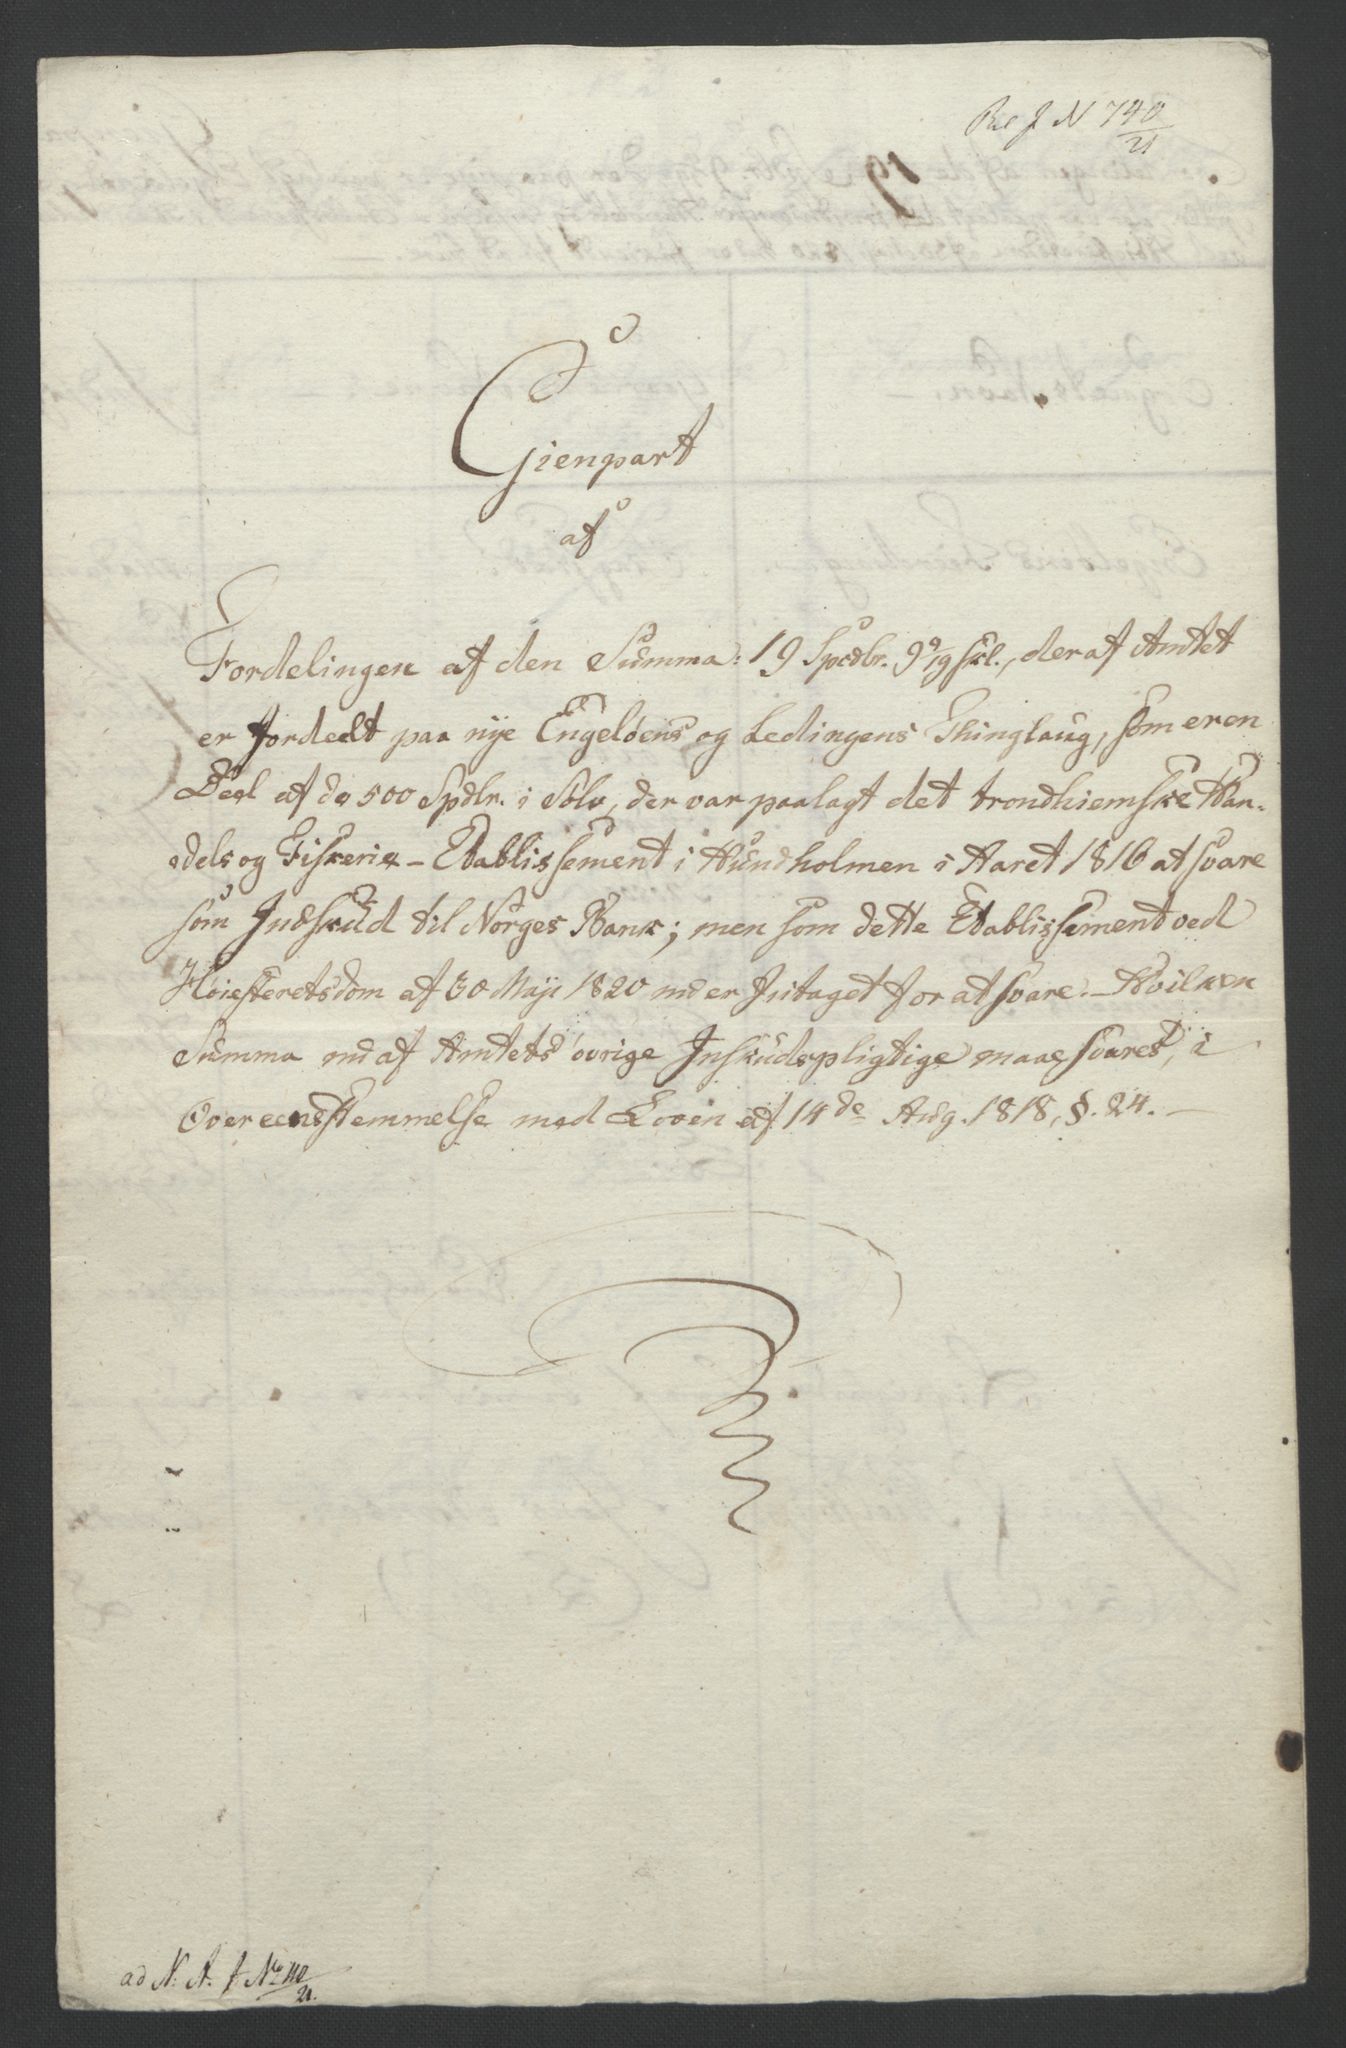 Rel J N 740/21
19
Gienpart
af
Fordelingen af den Summa: 19 Spedlr. 9 9/19 skl., deraf Amtet
er fordeelt paa nye Engelöens og Lødingens Thinglaug, som er en
Deel af de 500 Spdlr. i Sölv, der var paalagt det trondhiemske Han-
dels og Fiskerie-Etablissement i Hundholmen i Aaret 1816 at svare
som Indskud til Norges Bank; men som dette Etablissement ved
Höiesteretsdom af 30 Maji 1820 nu er fritaget for at svare. – Hvilken
Summa nu af Amtets övrige Inskudspligtige maae svares, i
Overeensstemmelse med Loven af 14de Aug. 1818, §. 24. –
ad N. A. J No 110/21.